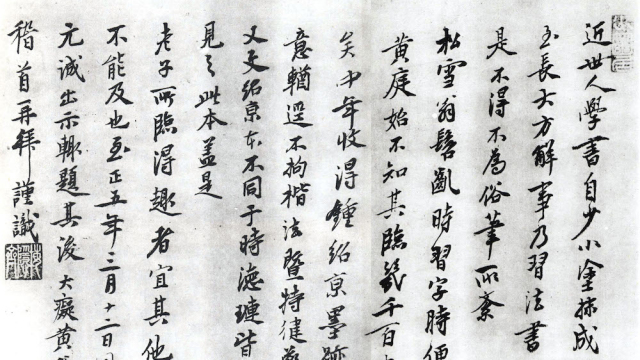 近世人學書自少小塗抹成
至長大方解事乃習法書
是不得不為俗筆所紊
松雪翁髫齓時習字時便
黃庭始不知其臨幾千百
矣中年收得鍾紹京墨跡
意輶逕不拘楷法暨特健
又紹京本不同于時德璉皆
見之此本蓋是
老子所臨得趣者宜其他
不能及也至正五年三月十二日
元誠出示輒題其後大癡黃
稽首再拜謹識